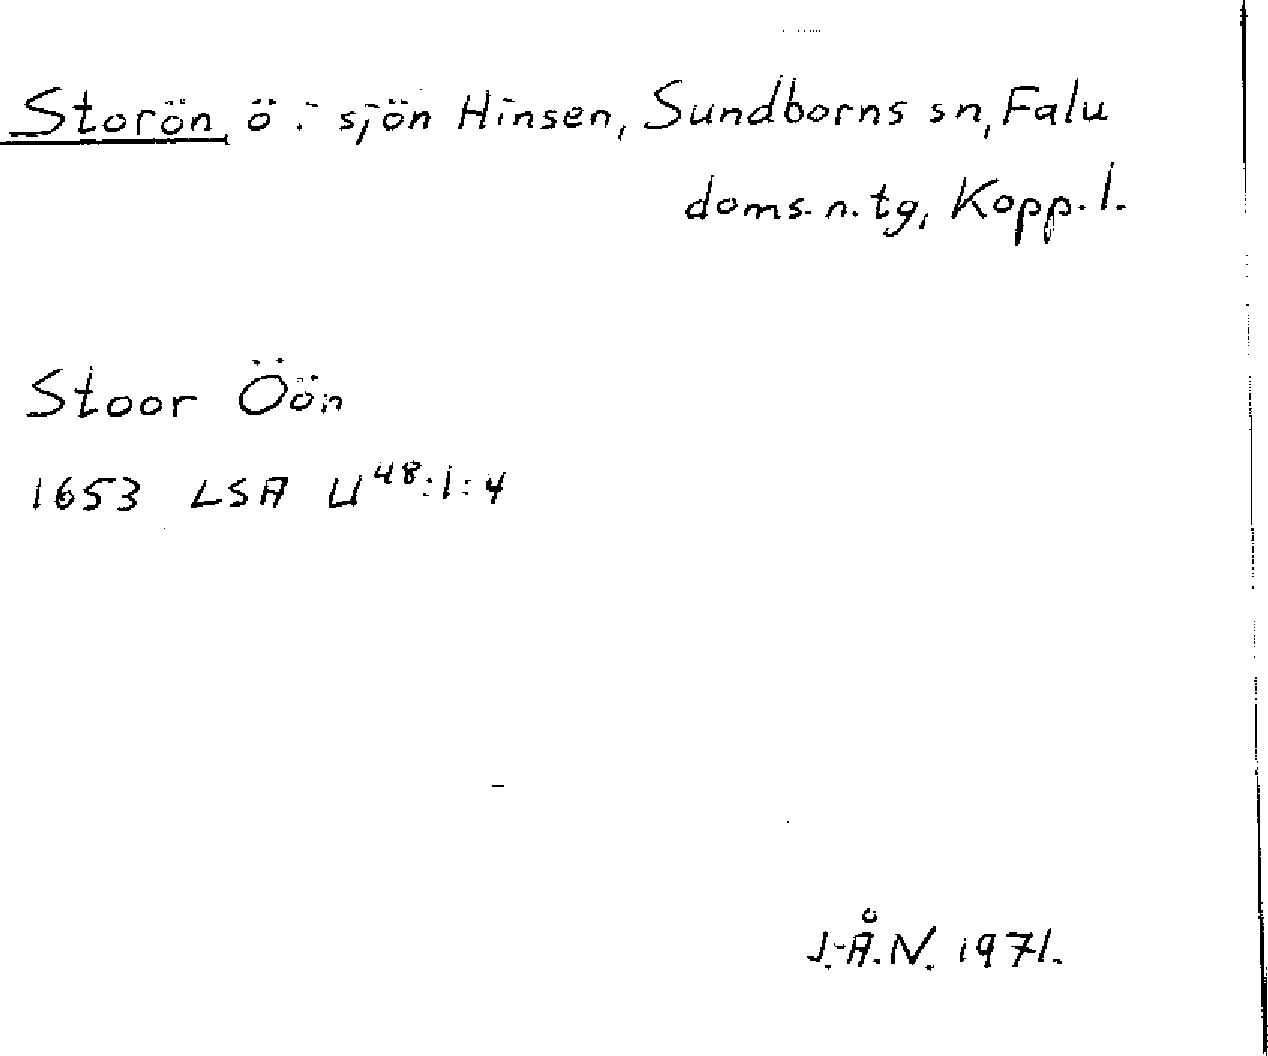 Storön, ö i sjön Hinsen, Sundborns sn, Falu
doms. n. tg, Kopp. l.
Stoor Öön
1653 LSA U 48:1:4
J.-Å.N. 1971.